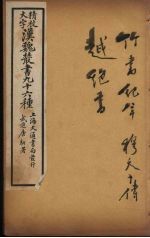 竹書紀年 穆天子傳
越絕書
精校
大字
漢魏叢書九十六種
上海大通書局發行
武進唐駝署